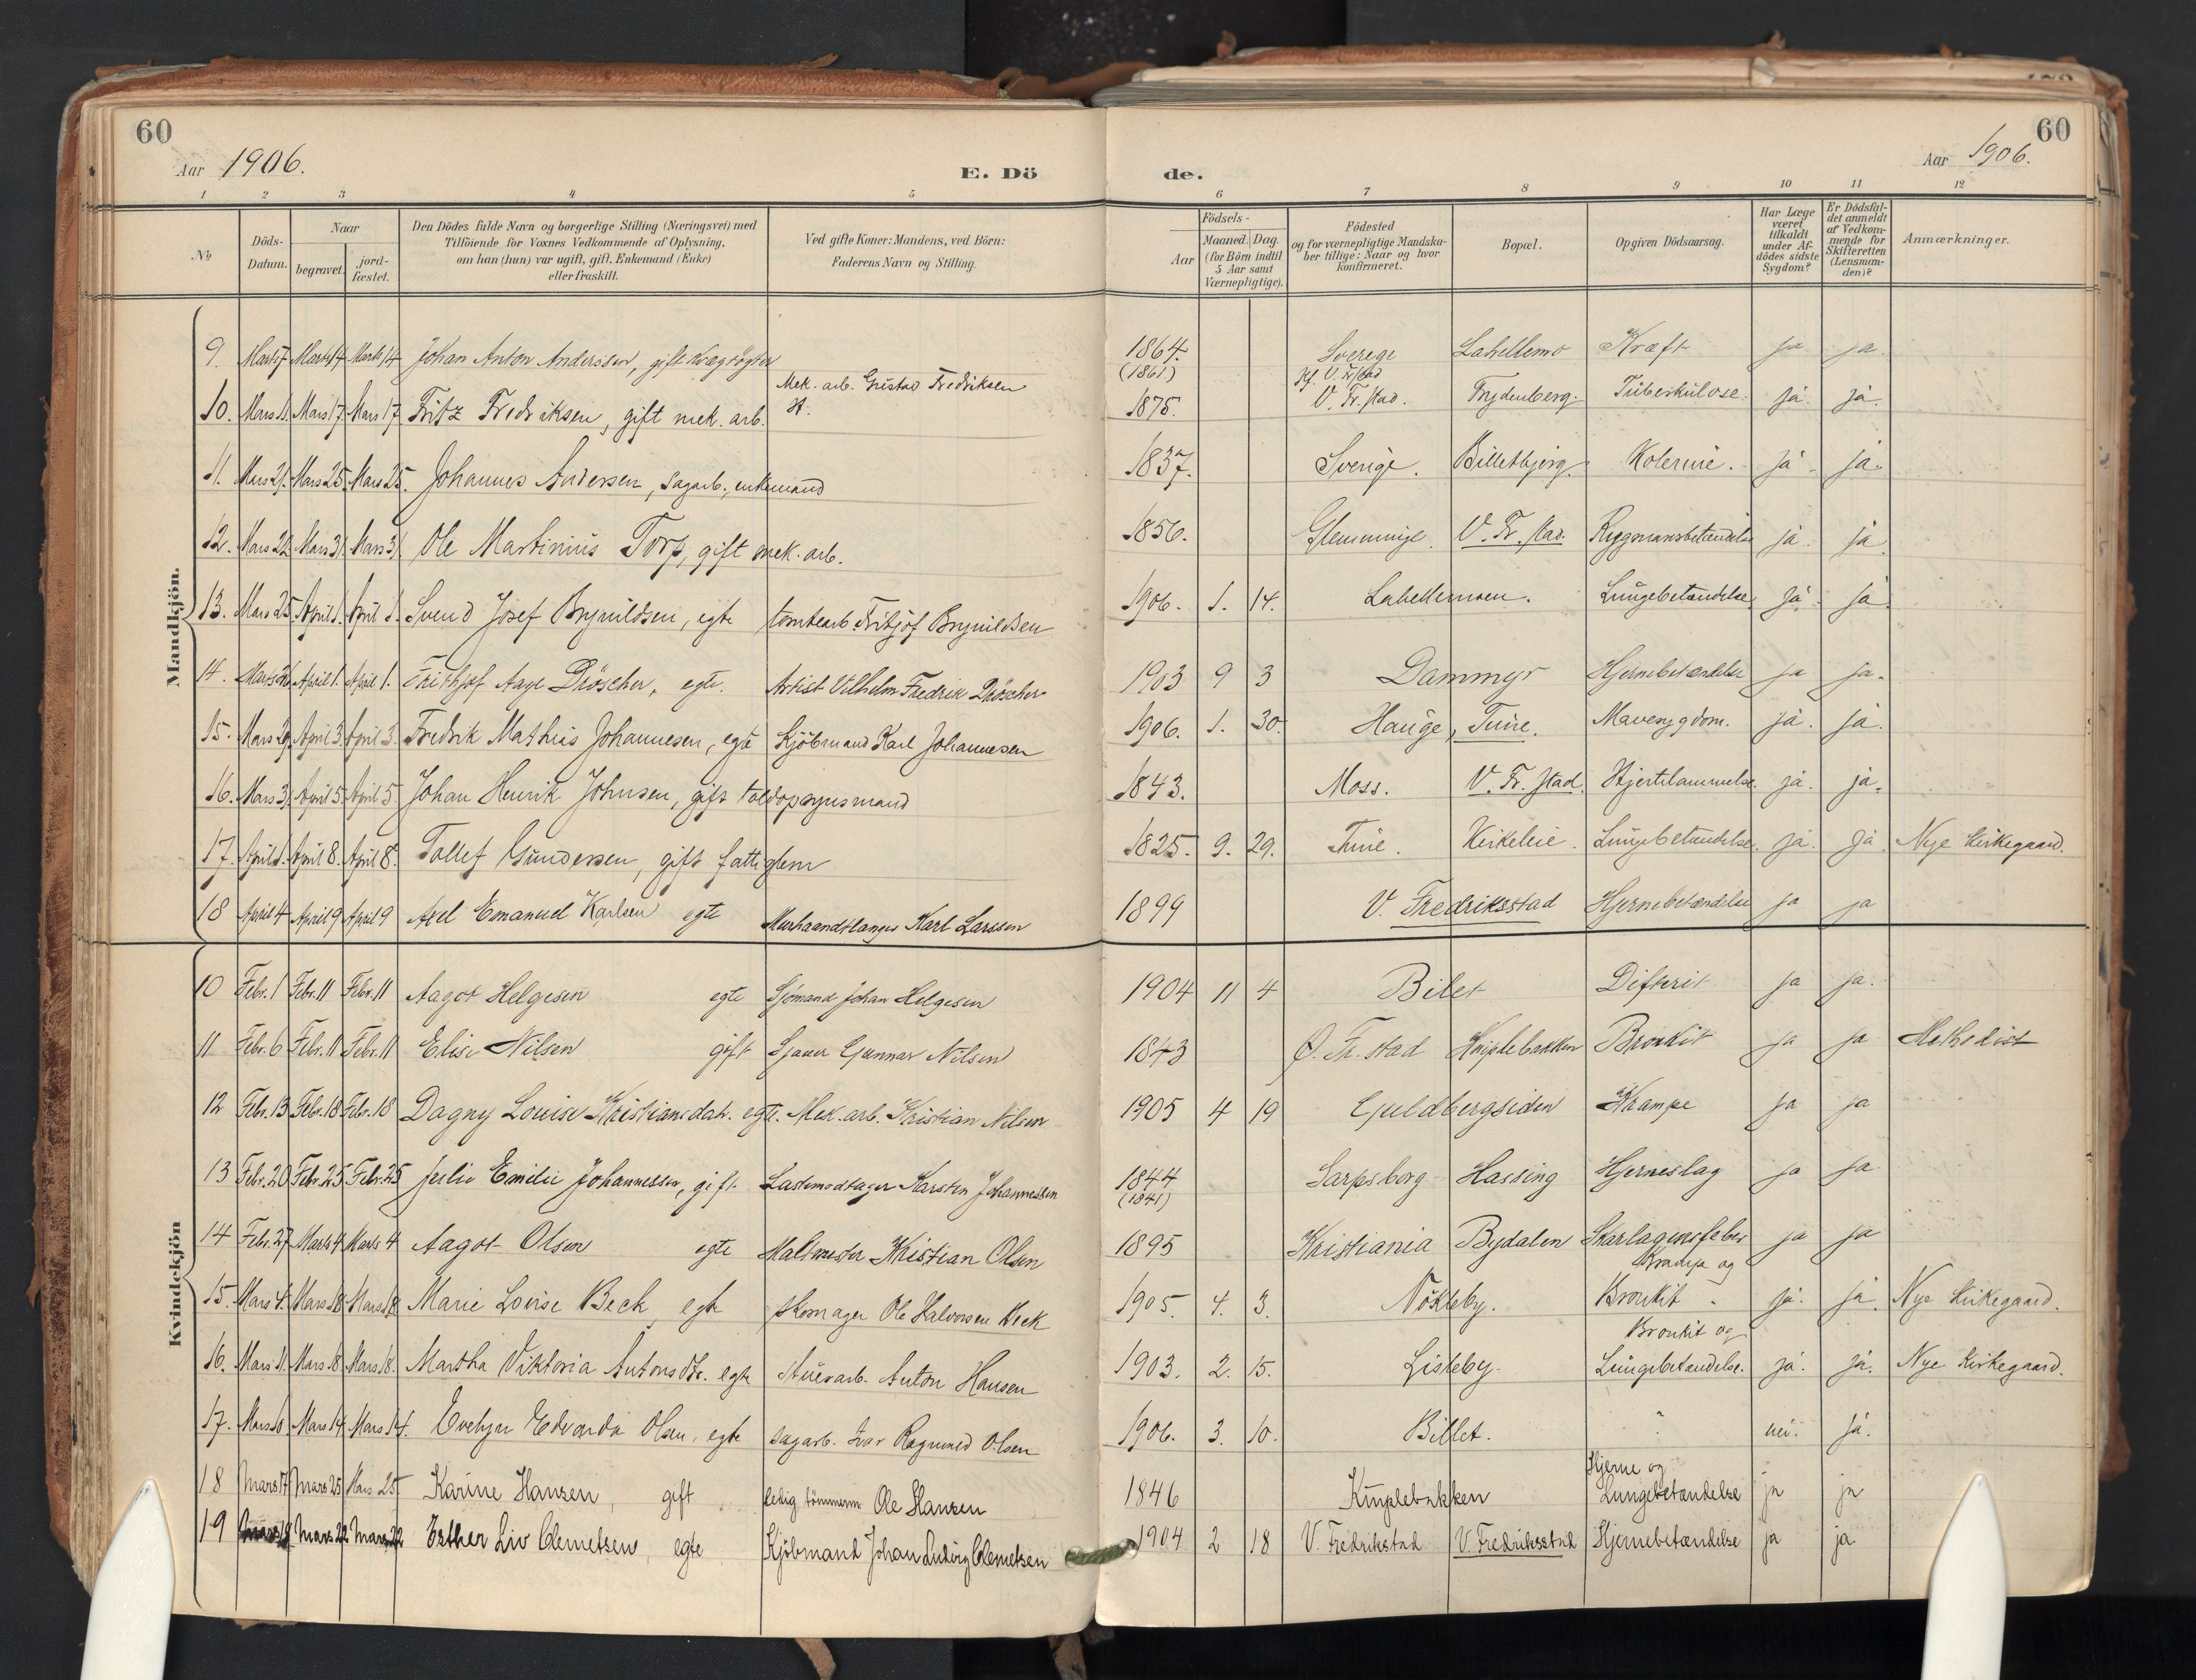 60
Aar 1906.
E. Dö
de.
Aar 1906.
60
1 2 3 4 5 6 7 8 9 10 11 12
No
Döds-Datum.
Naar
begravet.
jord-fæstet.
Den Dödes fulde Navn og borgerlige Stilling (Næringsvei) med
Tilföiende for Voxnes Vedkommende af Oplysning,
om han (hun) var ugift, gift, Enkemand (Enke)
eller fraskilt.
Ved gifte Koner: Mandens, ved Börn:
Faderens Navn og Stilling.
Födsels-
Aar
Maaned. Dag.
(for Börn indtil
5 Aar samt
Værnepligtige).
Födested
og for værnepligtige Mandska-
ber tillige: Naar og hvor
konfirmeret.
Bopæl.
Opgiven Dödsaarsag.
Har Læge
været
tilkaldt
under Af-
dödes sidste
Sygdom?
Er Dödsfal-
det anmeldt
af Vedkom-
mende for
Skifteretten
(Lensman-
den)?
Anmærkninger.
Mandkjön.
9. Marts 7 Marts 14 Marts 14 Johan Anton Anderssen, gift 1864. (1861) Sverege Labellemo Kræft ja ja.
10. Mars 11. Mars 17. Mars 17. Fritz Fredriksen, gift mek. arb. Mek. arb. Gustav Fredriksen 1875. V. Fr.stad. Frydenberg. Tüberkülose. já. já.
11. Mars 21. Mars 25. Mars 25. Johannes Andersen, sagarb., enkemand 1837. Sverige. Billetbjerg. Kolerine. já. ja.
12. Mars 22. Mars 31. Mars 31. Ole Martinius Torp, gift mek. arb. 1856. Glemminge. V. Fr.stad. Rygmarvsbetændelse já. já.
13. Mars 25. April 1. April 1. Svend Josef Brynildsen, egte tomtearb. Fritjof Brynildsen 1906. 1. 14. Labellemoen. Lungebetændelse já. já.
14. Marts 26 April 1. April 1. Frithjof Aage Dröscher, egte. Artist Vilhelm Fredrik Dröscher 1903 9 3 Dammyr Hjernebetændelse ja ja.
15. Mars 29. April 3. April 3. Fredrik Mathias Johannesen, egte Kjöbmand Karl Johannesen 1906. 1. 30. Hauge, Tune. Mavesygdom. já. já.
16. Mars 31. April 5. April 5. Johan Henrik Johnsen, gift toldopsynsmand 1843. Moss. V. Fr.stad. Hjertelammelse. já. já.
17. April 1. April 8. April 8. Tollef Gundersen, gift fattiglem 1825. 9. 29. Tune. Kirkeleie. Lungebetændelse. já. já. Nye Kirkegaard.
18 April 4 April 9 April 9 Axel Emanuel Karlsen egte Murhaandtlanger Karl Larssen 1899 V. Fredriksstad Hjernebetændelse ja ja
Kvindekjön
10 Febr. 1 Febr. 11 Febr. 11 Aagot Helgesen egte Sjömand Johan Helgesen 1904 11 4 Bilet Difterit ja ja.
11 Febr. 6 Febr. 11 Febr. 11 Elise Nilsen gift Sjauer Gunnar Nilsen 1843 Ø. Fr.stad Kniplebakken Bronkit ja ja Methodist
12 Febr. 13 Febr. 18 Febr. 18 Dagny Louise Kristiansdatr. egte. Mek. arb. Kristian Nilsen 1905 4 19 Guldbergsiden Krampe ja ja
13 Febr. 20 Febr. 25 Febr. 25 Julie Emilie Johannessen, gift Lastemodtager Karsten Johannessen 1844 (1841) Sarpsborg Hassing Hjerneslag ja ja
14 Febr. 27 Marts 4 Marts 4 Aagot Olsen egte Maltmester Kristian Olsen 1895 Kristiania Bydalen Skarlagensfeber ja ja
15. Mars 4. Mars 18. Mars 18. Marie Lovise Beck, egte skomager Ole Halvorsen Beck 1905. 4. 3. Nökleby. og Bronkit já. já. Nye Kirkegaard.
16. Mars 11. Mars 18. Mars 18. Martha Viktoria Antonsdtr. egte Stuerarb. Anton Hansen 1903. 2. 15. Lisleby. Bronkit og Lungebetændelse. já. já. Nye Kirkegaard.
17. Mars 10 Mars 14 Mars 14. Evelyn Edvarda Olsen, egte sagarb. Ivar Ragnvald Olsen 1906. 3. 10. Billet. " nei. já.
18 Mars 17 Mars 25 Mars 25 Karine Hansen, gift ledig tömmerm. Ole Hansen 1846 Kniplebakken Hjerne og Lungebetændelse ja ja
19 Mars 18 Mars 22 Mars 22 Esther Liv Clemetsen, egte Kjöbmand Johan Ludvig Clemetsen 1904 2 18 V. Fredrikstad V. Fredriksstad Hjernebetændelse ja ja